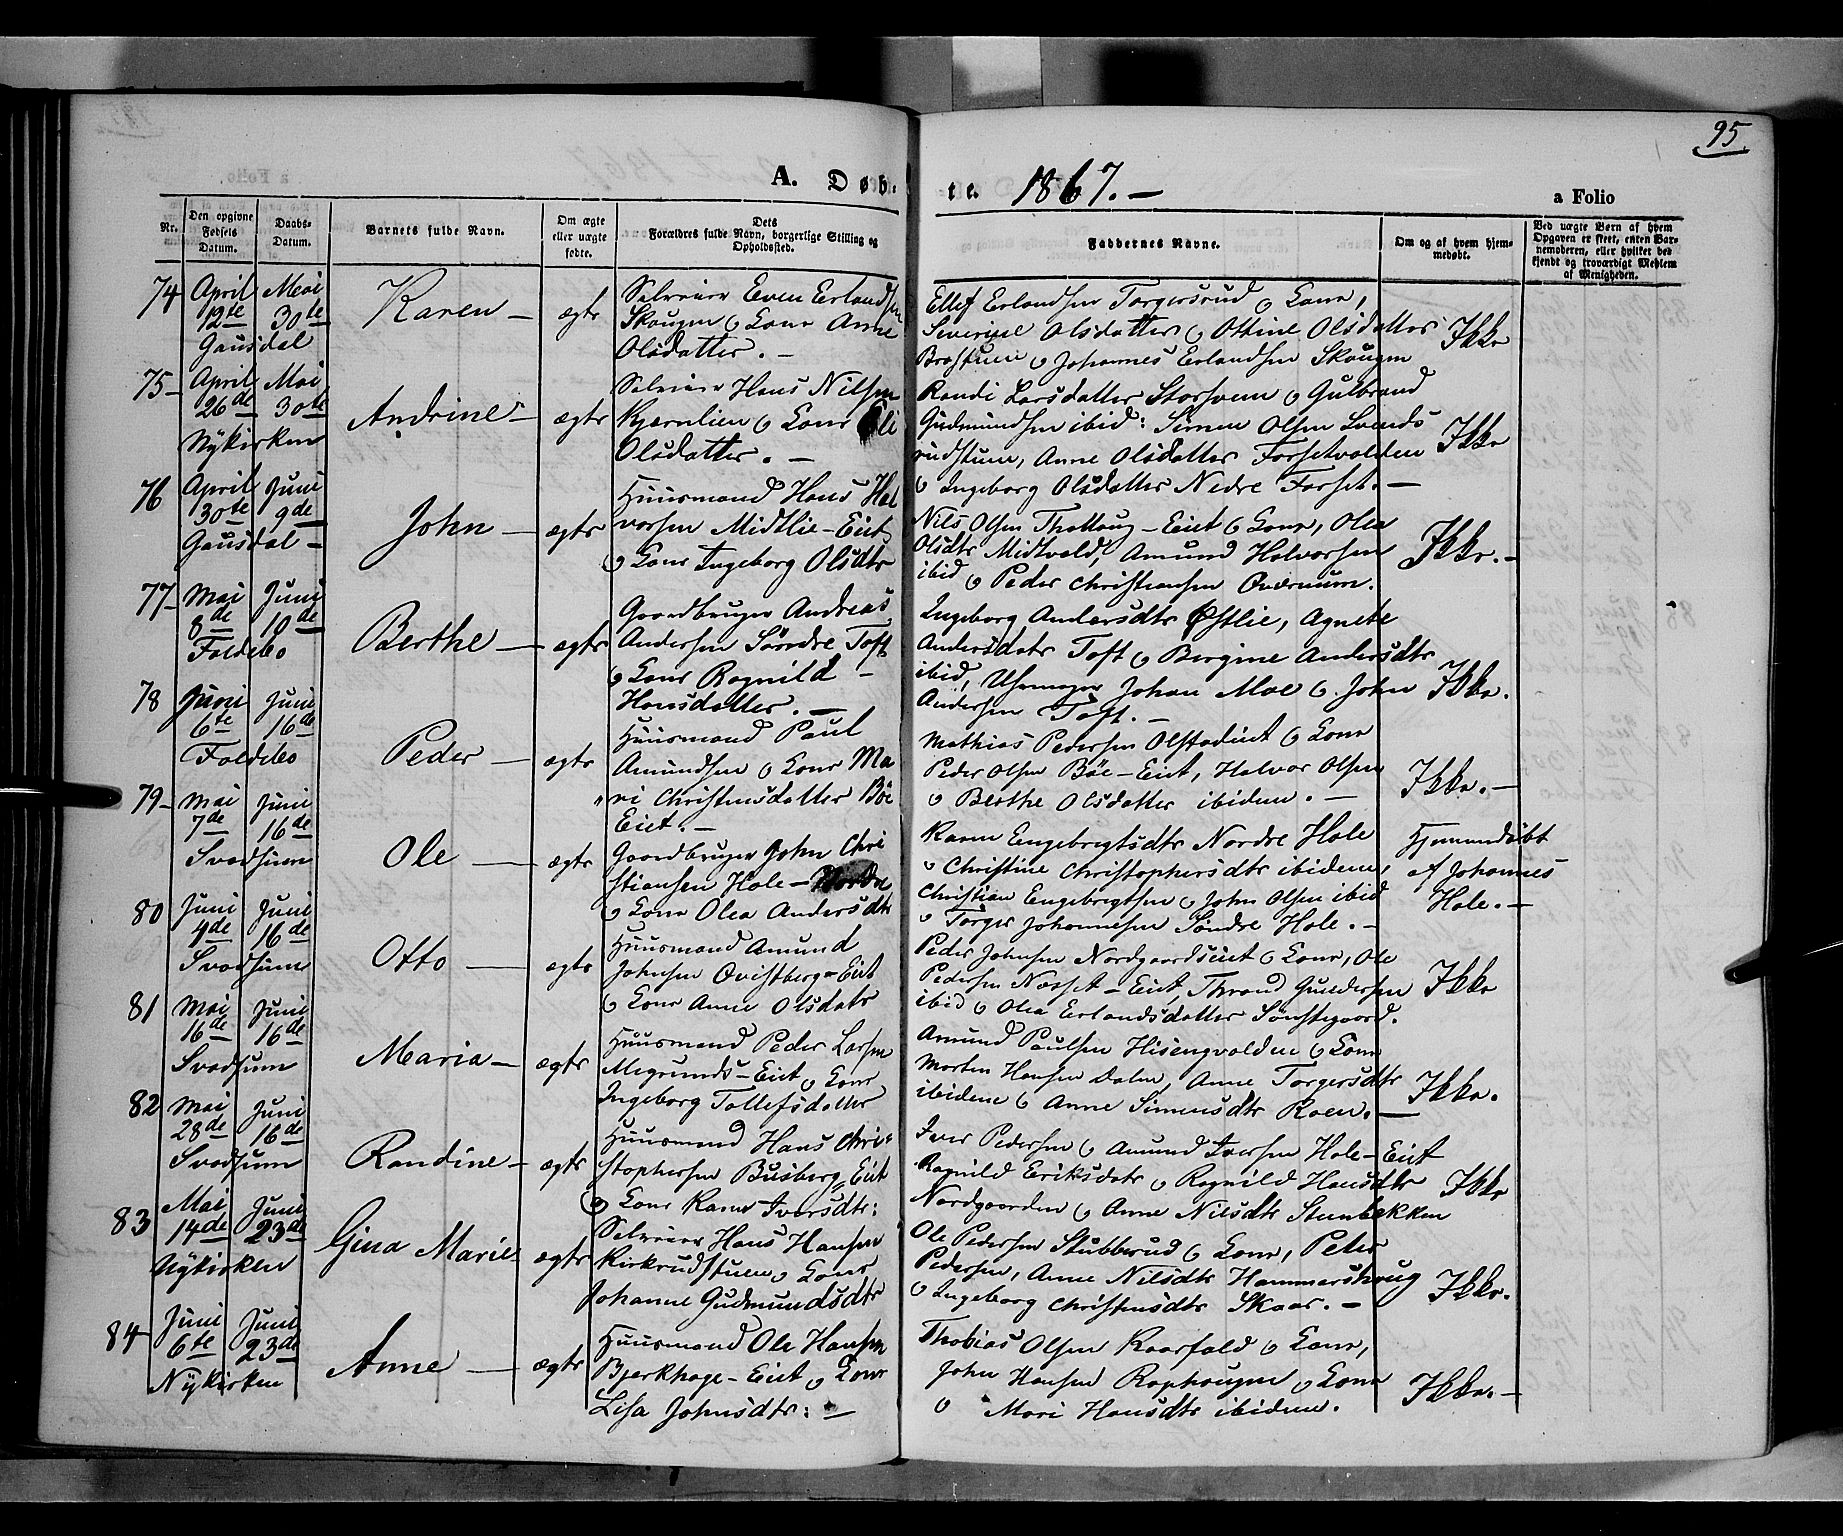 95
A. Døb-
te. 1867. -
a Folio
Nr.
Den opgivne Fødsels Datum.
Daabs-Datum.
Barnets fulde Navn.
Om ægte eller uægte fødte.
Dets Forældres fulde Navn, borgerlige Stilling og Opholdssted.
Faddernes Navne.
Om og af hvem hjemmedøbt.
Ved uægte Børn af hvem Opgaven er skeet, enten Barnemoderen, eller hvilket bekjendt og troværdigt Medlem af Menigheden.
74 April Mai
12te 30te
Gausdal
Karen - ægte
Selveier Even Erlandsen
Skougen & Kone Anne
Olsdatter. -
Ellef Erlandsen Torgersrud & Kone,
Severine Olsdatter & Ottine Olsdatter
Brostuen & Johannes Erlandsen Skougen
Ikke
75 - April Mai
26de 30te
Nykirken
Andrine - ægte
Selveier Hans Nilsen
Kjærnlien & Kone Eli
Olsdatter. -
Randi Larsdatter Storsveen & Gulbrand
Gudmundsen ibid: Simen Olsen Svends
rudstuen, Anne Olsdatter Forsetvolden
& Ingeborg Olsdatter Nedre Forset. -
Ikke
76 April Juni
30te 9de
Gausdal -
John - ægte
Huusmand Hans Hal
vorsen Midtlie-Eiet
& Kone Ingeborg Olsdtr
Nils Olsen Thallaug-Eiet & Kone, Olea
Olsdtr Midtvold, Amund Halvorsen
ibid & Peder Christiansen Qværnum.
Ikke. -
77 - Mai Juni
8de 10de
Foldebo
Berthe - ægte
Gaardbruger Andreas
Andersen Søndre Toft
& Kone Ragnild -
Hansdatter. -
Ingeborg Andersdtr Østlie, Agnete
Andersdatr Toft & Bergine Andersdtr
ibid, Uhrmager Johan Moe & John
Andersen Toft. -
Ikke.
78 Juni Juni
6te 16de
Foldebo
Peder - ægte
Huusmand Paul
Amundsen & Kone Ma
ri Christensdatter Bøe
Eiet. -
Mathias Pedersen Olstadeiet & Kone
Peder Olsen Bøe-Eiet, Halvor Olsen
& Berthe Olsdatter ibidem. -
Ikke. -
79 - Mai Juni
7de 16de
Svadsum
Ole - ægte
Gaardbruger John Chri
stiansen Hole - Nordre
& Kone Olea Andersdtr
Karen Engebregtsdtr Nordre Hole
& Christine Christophersdtr ibidem,
Christian Engebregtsen & John Olsen ibid
& Torger Johannesen Søndre Hole. -
Hjemmedøbt
af Johannes
Hole. -
80 Juni Juni
4de 16de
Svadsum
Otto - ægte
Huusmand Amund
Johnsen Qvistberg-Eiet
& Kone Anne Olsdatr
Peder Johnsen Nordgaardseiet & Kone, Ole
Pedersen Nosset-Eiet, Thrond Gundersen
ibid & Olea Erlandsdatter Sønstegaard.
Ikke
81 Mai Juni
16de 16de
Svadsum
Maria - ægte
Huusmand Peder Larsen
Megrunds-Eiet & Kone
Ingeborg Tollefsdatter
Amund Paulsen Hisengvolden & Kone
Morten Hansen Dalen, Anne Torgersdtr
ibidem & Anne Simensdtr Roen. -
Ikke.
82 Mai Juni
28de 16de
Svadsum
Randine - ægte
Huusmand Hans Chri-
stophersen Busberg-Eiet
& Kone Karen Iversdtr:
Iver Pedersen & Amund Iversen Hole-Eiet
Ragnild Eriksdatr & Ragnild Hansdtr
Nordgaarden & Anne Nilsdtr Stenbekken
Ikke
83 Mai Juni
14de 23de
Nykirken
Gina Marie - ægte
Selveier Hans Hansen
Kirkerudstuen & Kone
Johanne Gudmundsdtr
Ole Pedersen Stubberud & Kone, Peter
Pedersen, Anne Nilsdtr Hammershaug
& Ingeborg Christensdtr Skaar. -
Ikke.
84 - Juni Juni
6te 23de
Nykirken
Anne - ægte
Huusmand Ole Hansen
Bjerkhage-Eiet & Kone
Lisa Johnsdtr: -
Thobias Olsen Kaarfald & Kone,
John Hansen Raphougen & Kone
& Mari Hansdtr ibidem.
Ikke. -